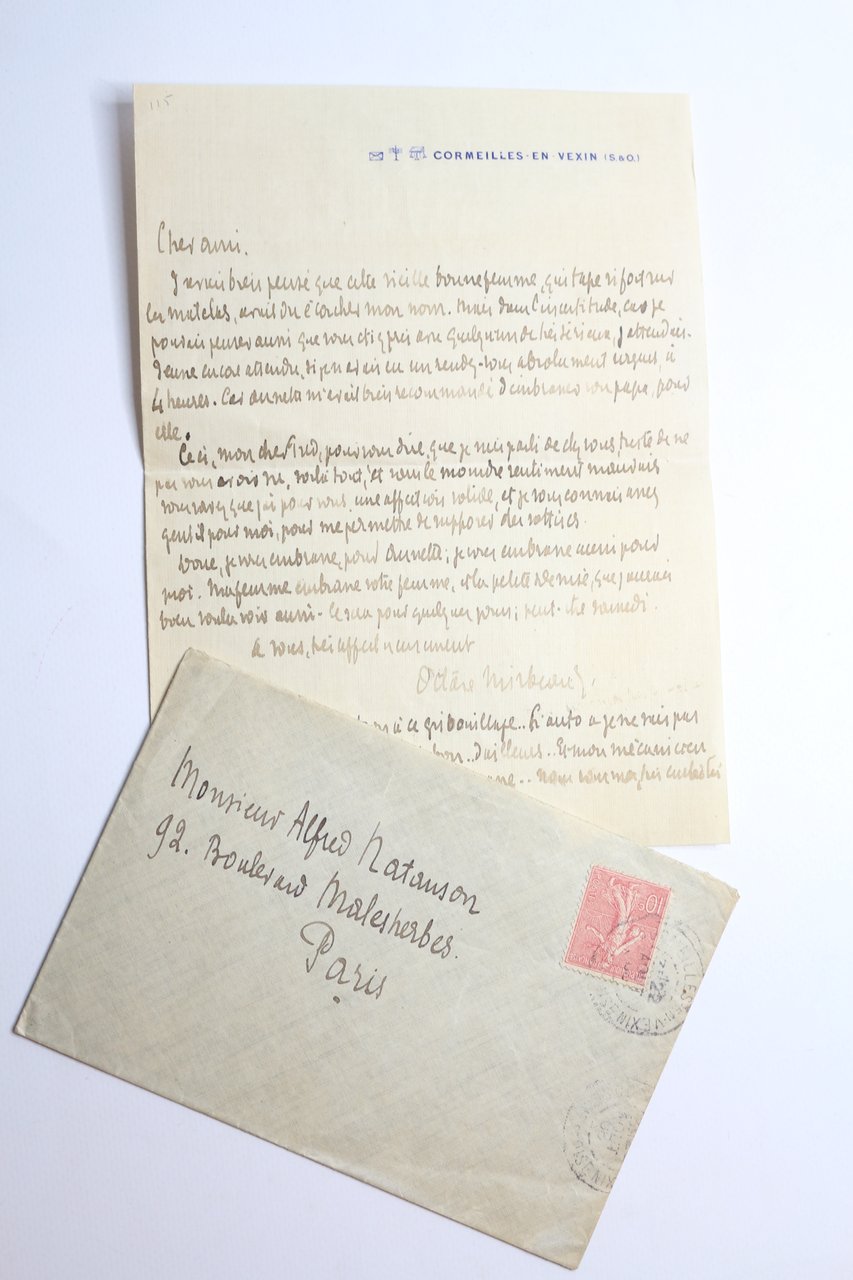 115
CORMEILLES-EN-VEXIN (S.&O.)
Cher ami.
J'avais bien pensé que cette vieille bonne femme, qui tape si fort sur
les matelas, avait dû écorcher mon nom. Mais dans l'incertitude, car je
pouvais penser aussi que vous étiez pris avec quelqu'un de très sérieux, j'attendais.
J'eusse encore attendu, si je n'avais eu un rendez-vous absolument urgent, à
4 heures. Car Annette m'avait bien recommandé d'embrasser son papa, pour
elle.
Ceci, mon cher Fred, pour vous dire, que je suis parti de chez vous, triste de ne
pas vous avoir vu, voilà tout, et sans le moindre sentiment mauvais
vous savez que j'ai pour vous, une affection solide, et je vous connais assez
gentil pour moi, pour me permettre de supposer des sottises.
Donc, je vous embrasse, pour Annette; je vous embrasse aussi pour
moi. Ma femme embrasse votre femme, et la petite Denise, que j'aurais
bien voulu voir aussi. Ce sera pour quelques jours; peut-être samedi.
à vous, très affectueusement
Octave Mirbeau
à ce gribouillage.. L'auto a je ne sais pas
bon.. D'ailleurs.. Et mon mécanicien
.. nous sommes
Monsieur Alfred Natanson
92. Boulevard Malesherbes.
Paris
10c
EN-VEXIN
AOUT